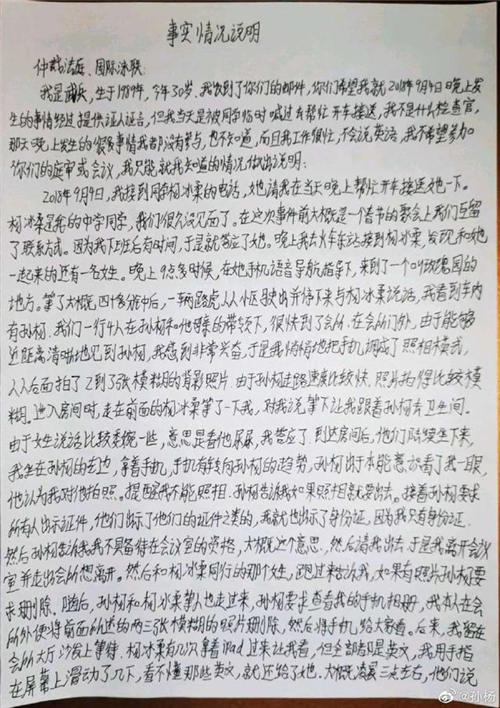 事实情况说明
仲裁法庭、国际泳联:
我是 ,生于1989年,今年30岁,我收到了你们的邮件,你们希望我就2018年9月4日晚上发
生的事情经过提供证人证言,但我当天是被同学临时喊过去帮忙开车接送,我不是什么检查官,
那天晚上发生的很多事情我都没有参与,也不知道,而且我工作很忙,不会说英语,我不希望参加
你们的庭审或会议,我只能就我知道的情况做出说明:
2018年9月4日,我接到同学 的电话,她请我在当天晚上帮忙开车接送她一下。
是我的中学同学,我们很久没见面了。在这次事件前大概是一个春节的歌会上我们互留
了联系方式。因为我下班后有时间,于是就答应了她。晚上我去火车东站接到 ,发现和她
一起来的还有一名女性。晚上9 多时候,在她手机语音导航指导下,来到了一个叫玫瑰园的
地方。等了大概四十多分钟后,一辆路虎从小区驶出并停下来与 说话,我看到车内
有孙杨。我们一行4人在孙杨和他 的带领下,很快到了会所。在会所门外,由于能够
近距离清晰地见到孙杨,我感到非常兴奋,于是我悄悄地把手机调成了照相模式,
从后面拍了2到3张模糊的背影照片。由于孙杨走路速度比较快,照片拍得比较模
糊。进入房间时,走在前面的 等了一下我,对我说等下让我跟着孙杨去卫生间。
由于女生说话比较委婉一些,意思是看他尿尿,我答应了。到达房间后,他们陆续坐下来,
我坐在孙杨的左边,拿着手机,手机有转向孙杨的趋势,孙杨出于本能意识看了我一眼,
他认为我对他拍照。提醒我不能照相。孙杨告诉我如果照相就要出去。接着孙杨要求
所有人出示证件,他们出示了他们的证件之类的,我就也出示了身份证,因为我只有身份证。
然后孙杨告诉我我不具备待在会议室的资格,大概这个意思,然后请我出去。于是我离开会议
室并走出会所想离开。然后和 同行的那个女生,跑过来告诉我,如果有照片孙杨要
求删除。随后,孙杨和 等人也走过来,孙杨要求查看我的手机相册,我本人在会
所外便将前面所述的两三张模糊的照片删除,然后将手机给大家看。后来,我留在
会所大厅沙发上等待。 有几次拿着iPad过来让我看,但全部都是英文,我用手指
在屏幕上滑动了几下,看不懂那些英文,就还给了她。大概凌晨三点左右,他们说
@孙杨